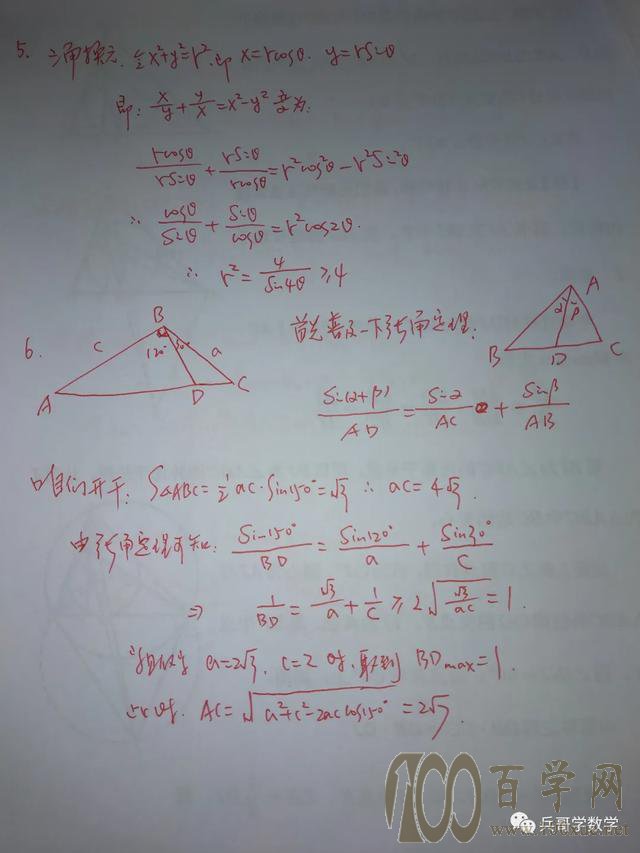 5. 三角换元. 令x²+y²=r². 即 x=rcosθ. y=rsinθ
即: x/y + y/x = x²-y² 变为:
rcosθ/rsinθ + rsinθ/rcosθ = r²cos²θ - r²sin²θ
∴ cosθ/sinθ + sinθ/cosθ = r²cos2θ.
∴ r² = 4/sin4θ ≥ 4
6.
B
c
120°
30°
a
A
D
C
首先普及一下张角定理:
A
α
β
B
D
C
sin(α+β)/AD = sinα/AC + sinβ/AB
咱们开干: S△ABC = ½ac·sin150° = √3 ∴ ac = 4√3.
由张角定理可知: sin150°/BD = sin120°/a + sin30°/c
⇒ 1/BD = √3/a + 1/c ≥ 2√(√3/ac) = 1.
当且仅当 a=2√3, c=2 时, 取到 BDmax=1.
此时. AC = √(a²+c²-2ac cos150°) = 2√7.
100百学网
兵哥学数学